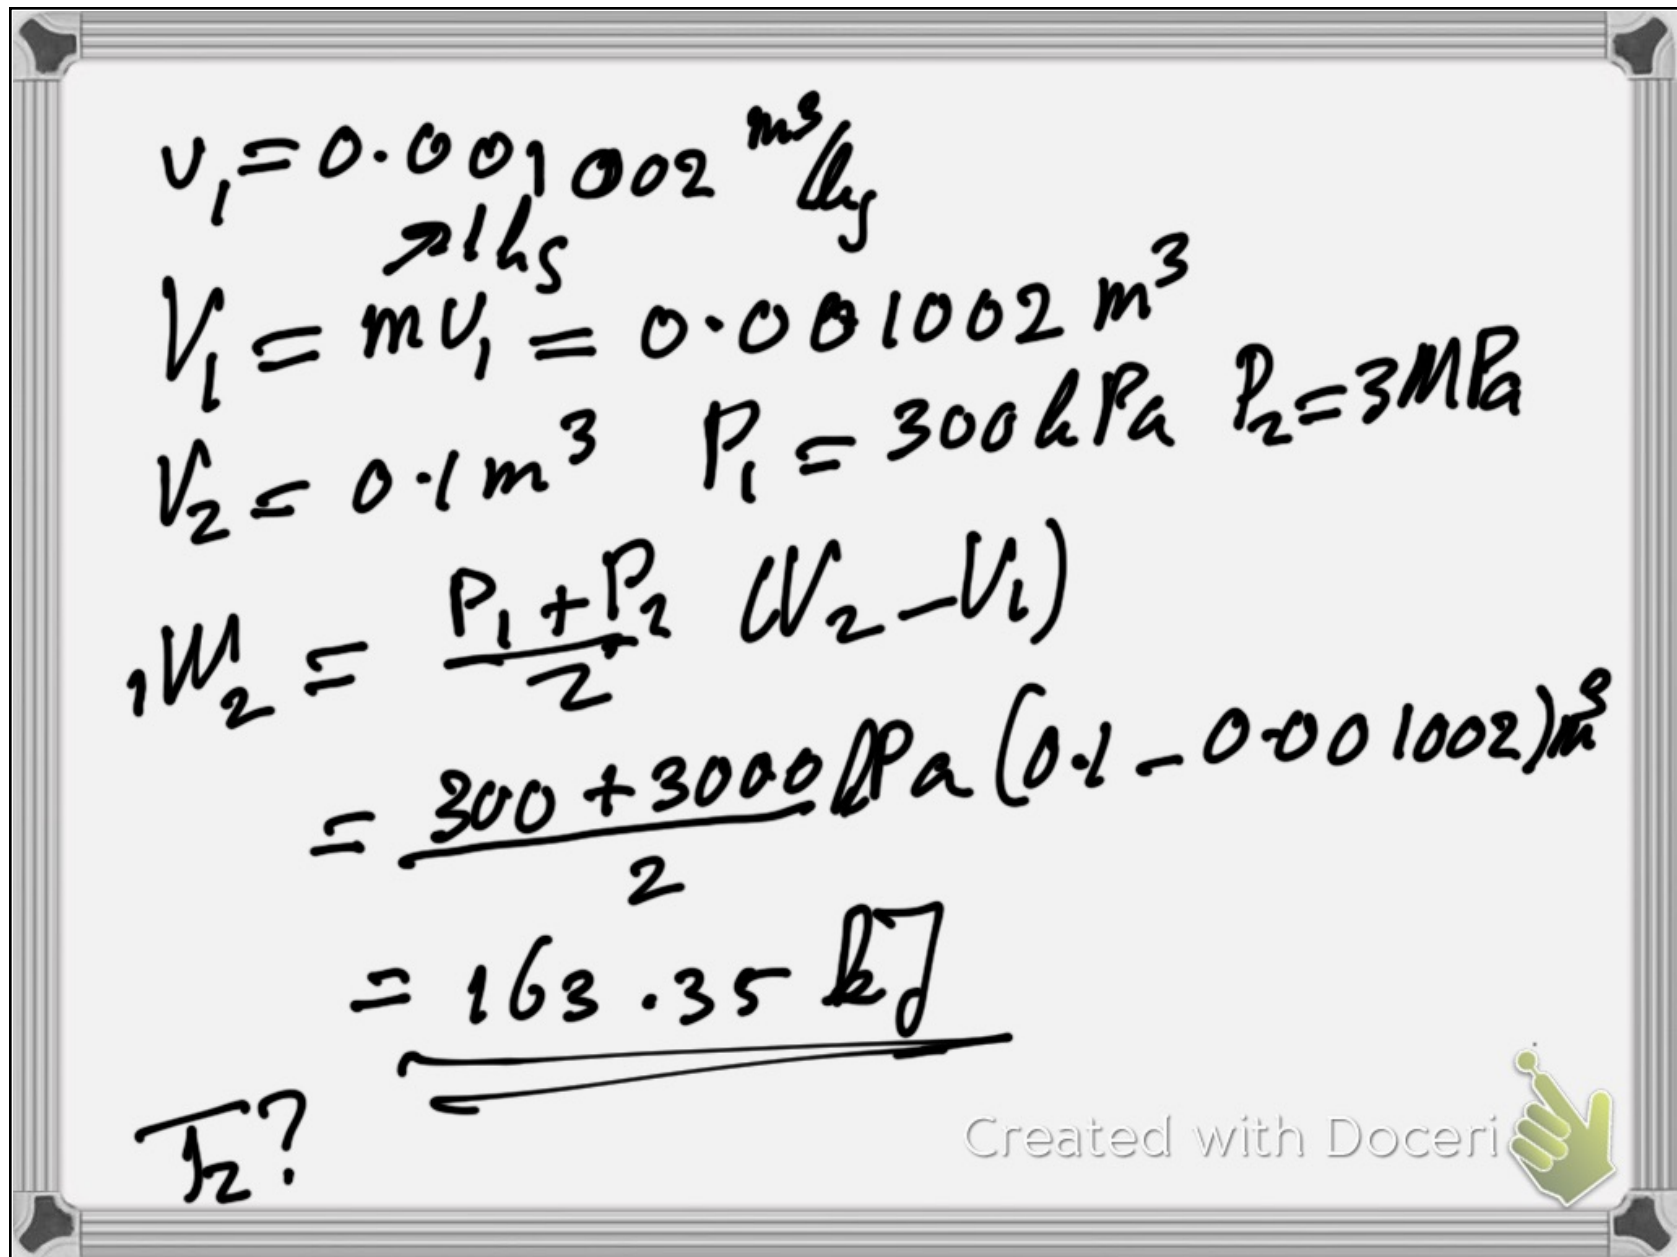 v₁ = 0.001002 m³/kg
↗1kg
V₁ = mv₁ = 0.001002 m³
V₂ = 0.1 m³ P₁ = 300 kPa P₂ = 3 MPa
₁W₂ = (P₁ + P₂)/2 (V₂ - V₁)
= (300 + 3000)/2 kPa (0.1 - 0.001002) m³
= 163.35 kJ
T₂?
Created with Doceri